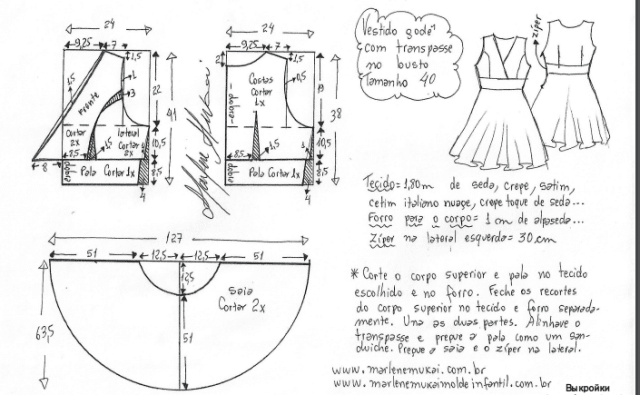 24
9,25
7
1,5
1
3
15
Frente
22
41
Cortar 2x
lateral Cortar 2x
8,5
1,5
10,5
8
dobra
Pala Cortar 1x
8,5
4
Marlene Mukai
24
9,25
7
2
1,5
Costas
Cortar
1x
0,5
19
38
dobra
8,5
1,5
10,5
dobra
Pala Cortar 1x
8,5
4
Vestido godê
com transpasse
no busto
Tamanho 40
zíper
Tecido= 1,80m de seda, crepe, satim,
cetim italiano nuage, crepe toque de seda...
Forro para o corpo= 1 cm de alpaseda...
Zíper na lateral esquerda= 30cm
127
51
12,5
12,5
51
12,5
saia
Cortar 2x
63,5
51
* Corte o corpo superior e pala no tecido
escolhido e no forro. Feche os recortes
do corpo superior no tecido e forro separada-
mente. Una as duas partes. Alinhave o
transpasse e pregue a pala como um san-
duiche. Pregue a saia e o zíper na lateral.
www.marlenemukai.com.br
www.marlenemukaimoldeinfantil.com.br
Выкройки